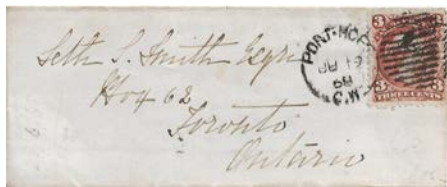 Seth S. Smith Esqre
Box 62
Toronto
Ontario
PORT-HOPE
JU 19
68
C.W
3 3
3 3
THREE CENTS